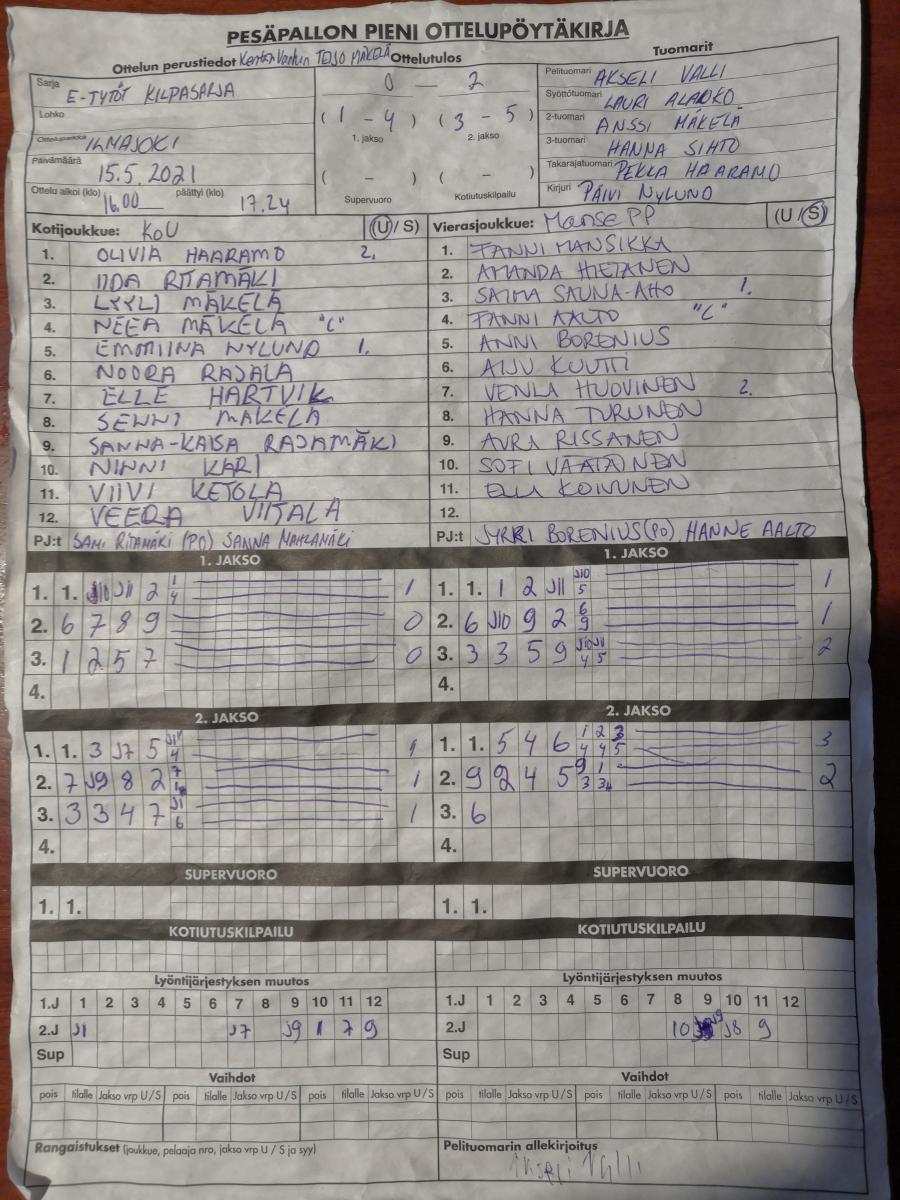 PESÄPALLON PIENI OTTELUPÖYTÄKIRJA
Ottelun perustiedot Kentän Vanhin TEIJO MÄKELÄ Ottelutulos Tuomarit
Sarja E-TYTÖT KILPASARJA 0 – 2 Pelituomari AKSELI VALLI
Lohko (1 – 4) (3 – 5) Syöttötuomari LAURI ALARKO
1. jakso 2. jakso 2-tuomari ANSSI MÄKELÄ
Ottelupaikka ILMAJOKI 3-tuomari HANNA SIHTO
Päivämäärä 15.5.2021 ( – ) ( – ) Takarajatuomari PEKKA HAARAMO
Ottelu alkoi (klo) 16.00 päättyi (klo) 17.24 Supervuoro Kotiutuskilpailu Kirjuri PÄIVI NYLUND
Kotijoukkue: KoU (U / S) Vierasjoukkue: Manse PP (U / S)
1. OLIVIA HAARAMO 2. 1. FANNI MANSIKKA
2. IIDA RITAMÄKI 2. AMANDA HIETANEN
3. LYYLI MÄKELÄ 3. SAIMA SAUNA-AHO 1.
4. NEEA MÄKELÄ "C" 4. FANNI AALTO "C"
5. EMMIINA NYLUND 1. 5. ANNI BORENIUS
6. NOORA RAJALA 6. AINU KUUTTI
7. ELLE HARTVIK 7. VENLA HUOVINEN 2.
8. SENNI MÄKELÄ 8. HANNA TURUNEN
9. SANNA-KAISA RAJAMÄKI 9. AURA RISSANEN
10. NINNI KARI 10. SOFI VÄÄTÄINEN
11. VIIVI KETOLA 11. ELLI KOIVUNEN
12. VEERA VIITALA 12.
PJ:t SAMI RITAMÄKI (PO) SANNA PJ:t JYRKI BORENIUS (PO) HANNE AALTO
1. JAKSO 1. JAKSO
1. 1. J11 2 1 4 1 1. 1. 1 2 J11 J10 5 1
2. 6 7 8 9 0 2. 6 J10 9 2 6 9 1
3. 1 2 5 7 0 3. 3 3 5 9 J10 J11 4 5 2
4. 4.
2. JAKSO 2. JAKSO
1. 1. 3 J7 5 J11 4 1 1. 1. 5 4 6 1 2 3 4 4 5 3
2. 7 J9 8 2 7 1 2. 9 2 4 5 9 1 3 2
3. 3 3 4 7 J1 6 1 3. 6
4. 4.
SUPERVUORO SUPERVUORO
1. 1. 1. 1.
KOTIUTUSKILPAILU KOTIUTUSKILPAILU
Lyöntijärjestyksen muutos Lyöntijärjestyksen muutos
1.J 1 2 3 4 5 6 7 8 9 10 11 12 1.J 1 2 3 4 5 6 7 8 9 10 11 12
2.J J1 J7 J9 1 7 9 2.J 10 J9 J8 9
Sup Sup
Vaihdot Vaihdot
pois tilalle Jakso vrp U / S pois tilalle Jakso vrp U / S pois tilalle Jakso vrp U / S pois tilalle Jakso vrp U / S pois tilalle Jakso vrp U / S pois tilalle Jakso vrp U / S
Rangaistukset (joukkue, pelaaja nro, jakso vrp U / S ja syy) Pelituomarin allekirjoitus
Akseli Valli